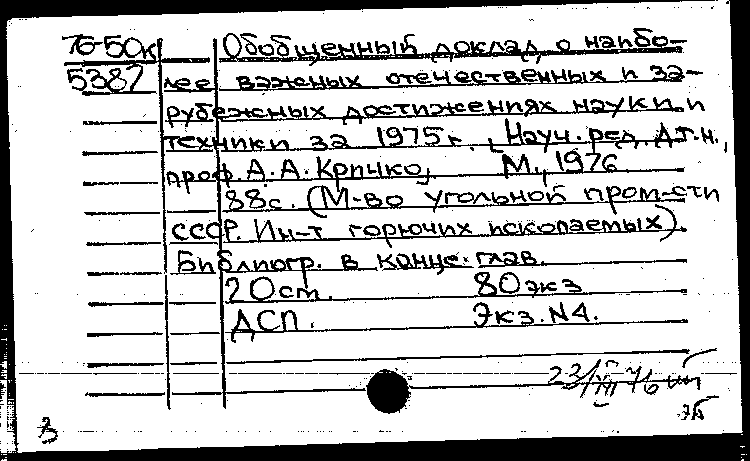 76-50к Обобщенный доклад о наибо-
5387 лее важных отечественных и за-
рубежных достижениях науки и
техники за 1975г. [Науч. ред. д.т.н.,
проф. А.А. Кричко]. М., 1976
88с. (М-во угольной пром-сти
СССР. Ин-т горючих ископаемых).
Библиогр. в конце глав.
20ст. 80экз
ДСП. Экз. N4.
23/VIII 76